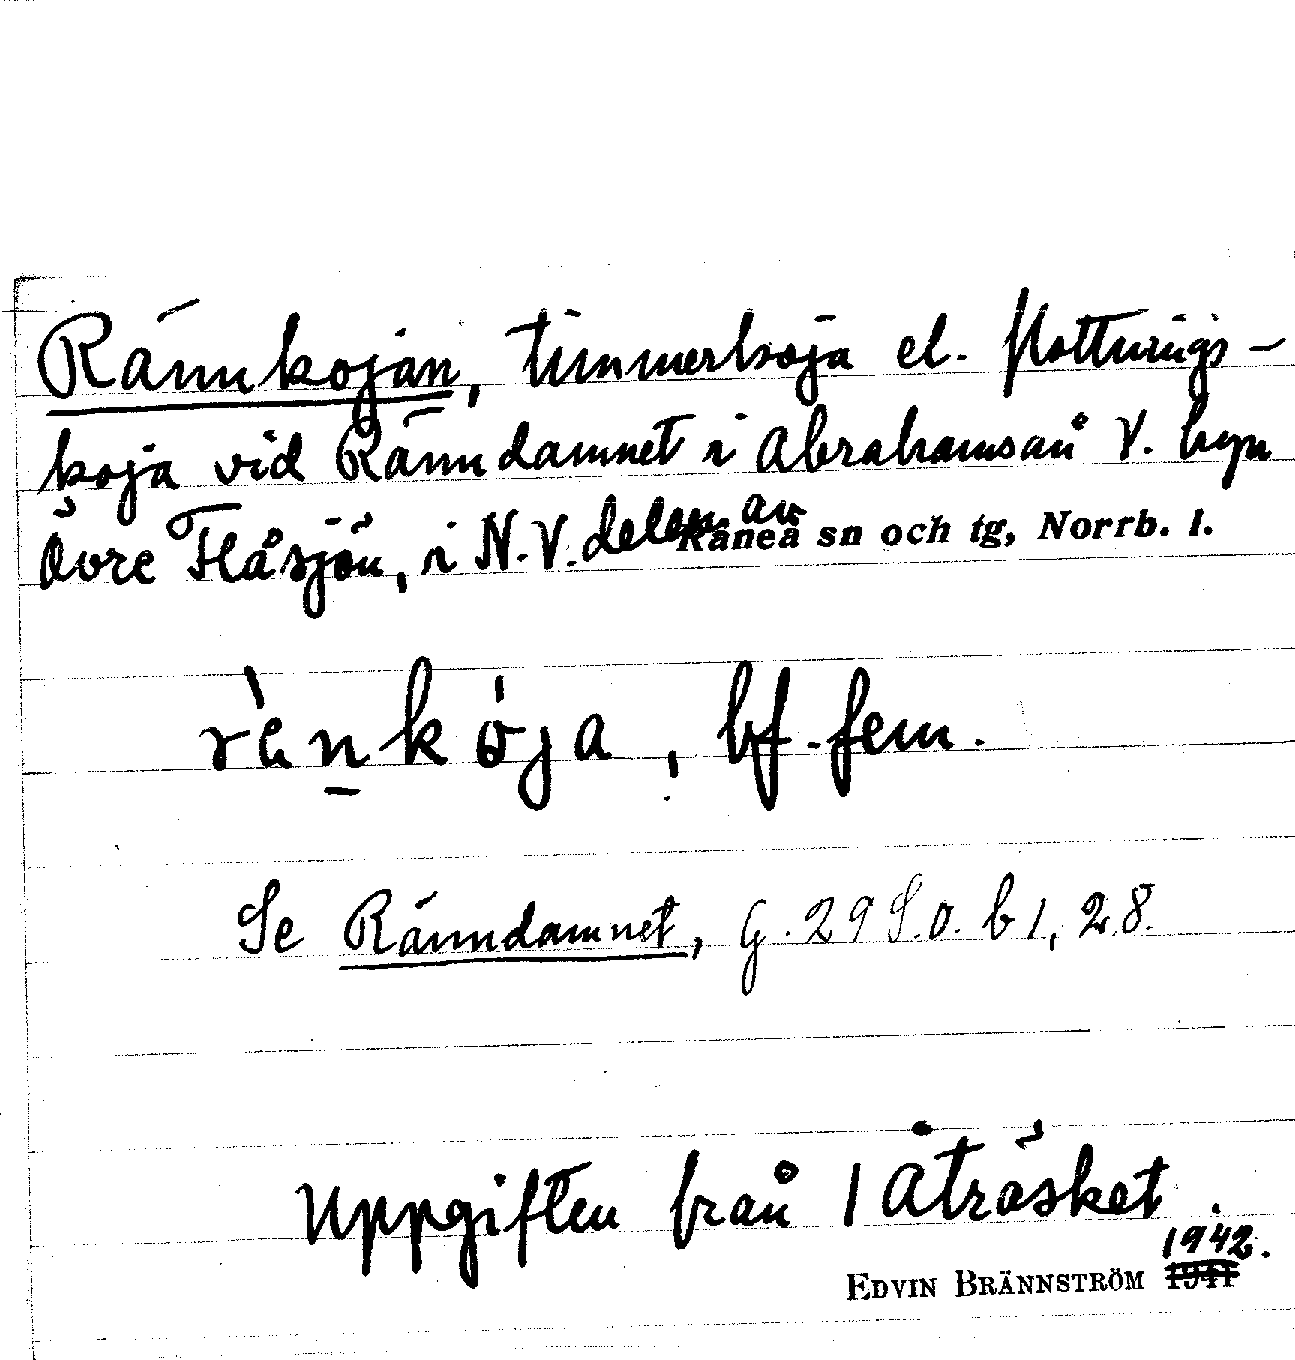 Rännkojan, timmerkoja el. flottnings-
koja vid Ränndamnet i Abrahamsån V. byn
Övre Flåsjön, i N.V. delen av Råneå sn och tg, Norrb. l.
bf. fem.
Se Ränndamnet, G. 29 S.O. b 1, 28.
Uppgiften från 1 Åträsket.
1942.
EDVIN BRÄNNSTRÖM 1941